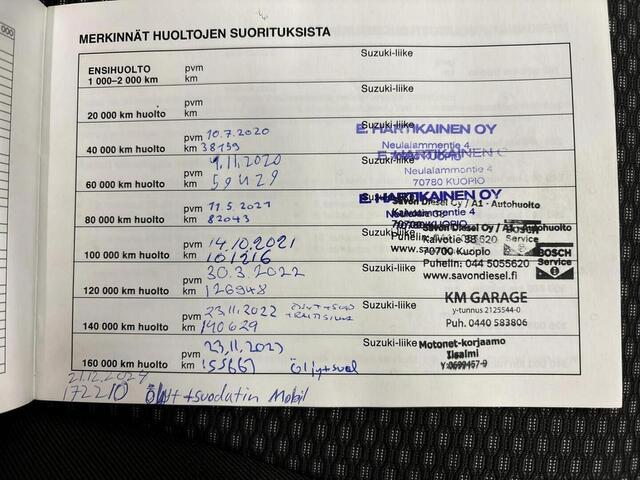 000
MERKINNÄT HUOLTOJEN SUORITUKSISTA
Suzuki-liike
ENSIHUOLTO pvm
1 000–2 000 km km
Suzuki-liike
pvm
20 000 km huolto km
Suzuki-liike
pvm 10.7.2020 E. HARTIKAINEN OY
40 000 km huolto km 38159 Neulalammentie 4
E. HARTIKAINEN
KUOPIO
pvm 9.11.2020 Neulalammentie 4
60 000 km huolto km 59429 70780 KUOPIO
E. HARTIKAINEN OY
pvm 11.5.2021 Savon Diesel Oy / A1 - Autohuolto
80 000 km huolto km 82043
Savon Diesel Oy / A1 - Autohuolto
pvm 14.10.2021 Kalvotie 38
100 000 km huolto km 101216 70700 Kuopio
Suzuki-liike
Puhelin: 044 5055620
pvm 30.3.2022 www.savondiesel.fi
120 000 km huolto km 126948
BOSCH
Service
Suzuki-liike KM GARAGE
pvm 23.11.2022 y-tunnus 2125544-0
140 000 km huolto km 140629 Puh. 0440 583806
Suzuki-liike Motonet-korjaamo
pvm 23.11.2023 Iisalmi
160 000 km huolto km 155667 Öljyt+suod
21.12.2024
172210 Öljyt +suodatin Mobil